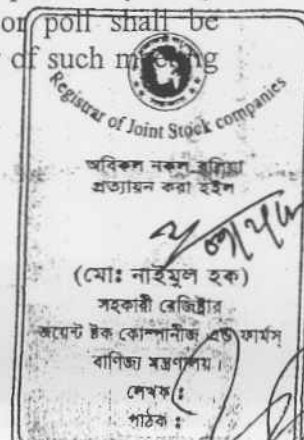 or poll shall be
of such meeting
Registrar of Joint Stock companies
অবিকল নকল বলিয়া
প্রত্যায়ন করা হইল
(মোঃ নাইমুল হক)
সহকারী রেজিষ্ট্রার
জয়েন্ট ষ্টক কোম্পানীজ এন্ড ফার্মস্
বাণিজ্য মন্ত্রণালয়।
লেখক :
পাঠক :